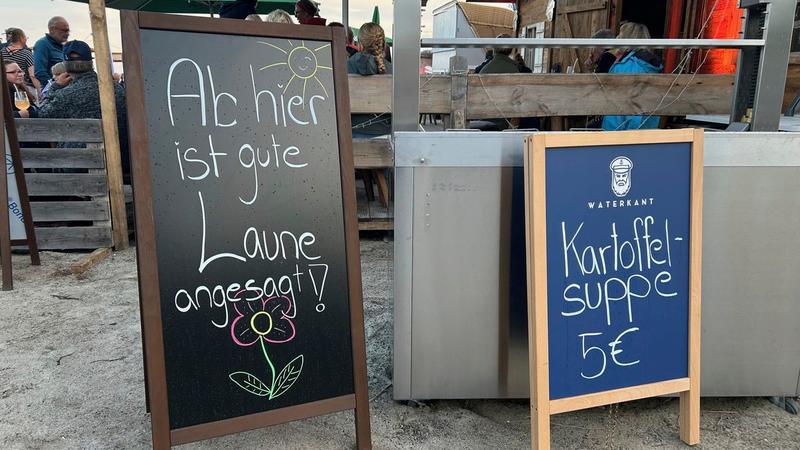 Ab hier
ist gute
Laune
angesagt!
WATERKANT
Kartoffel-
suppe
5€